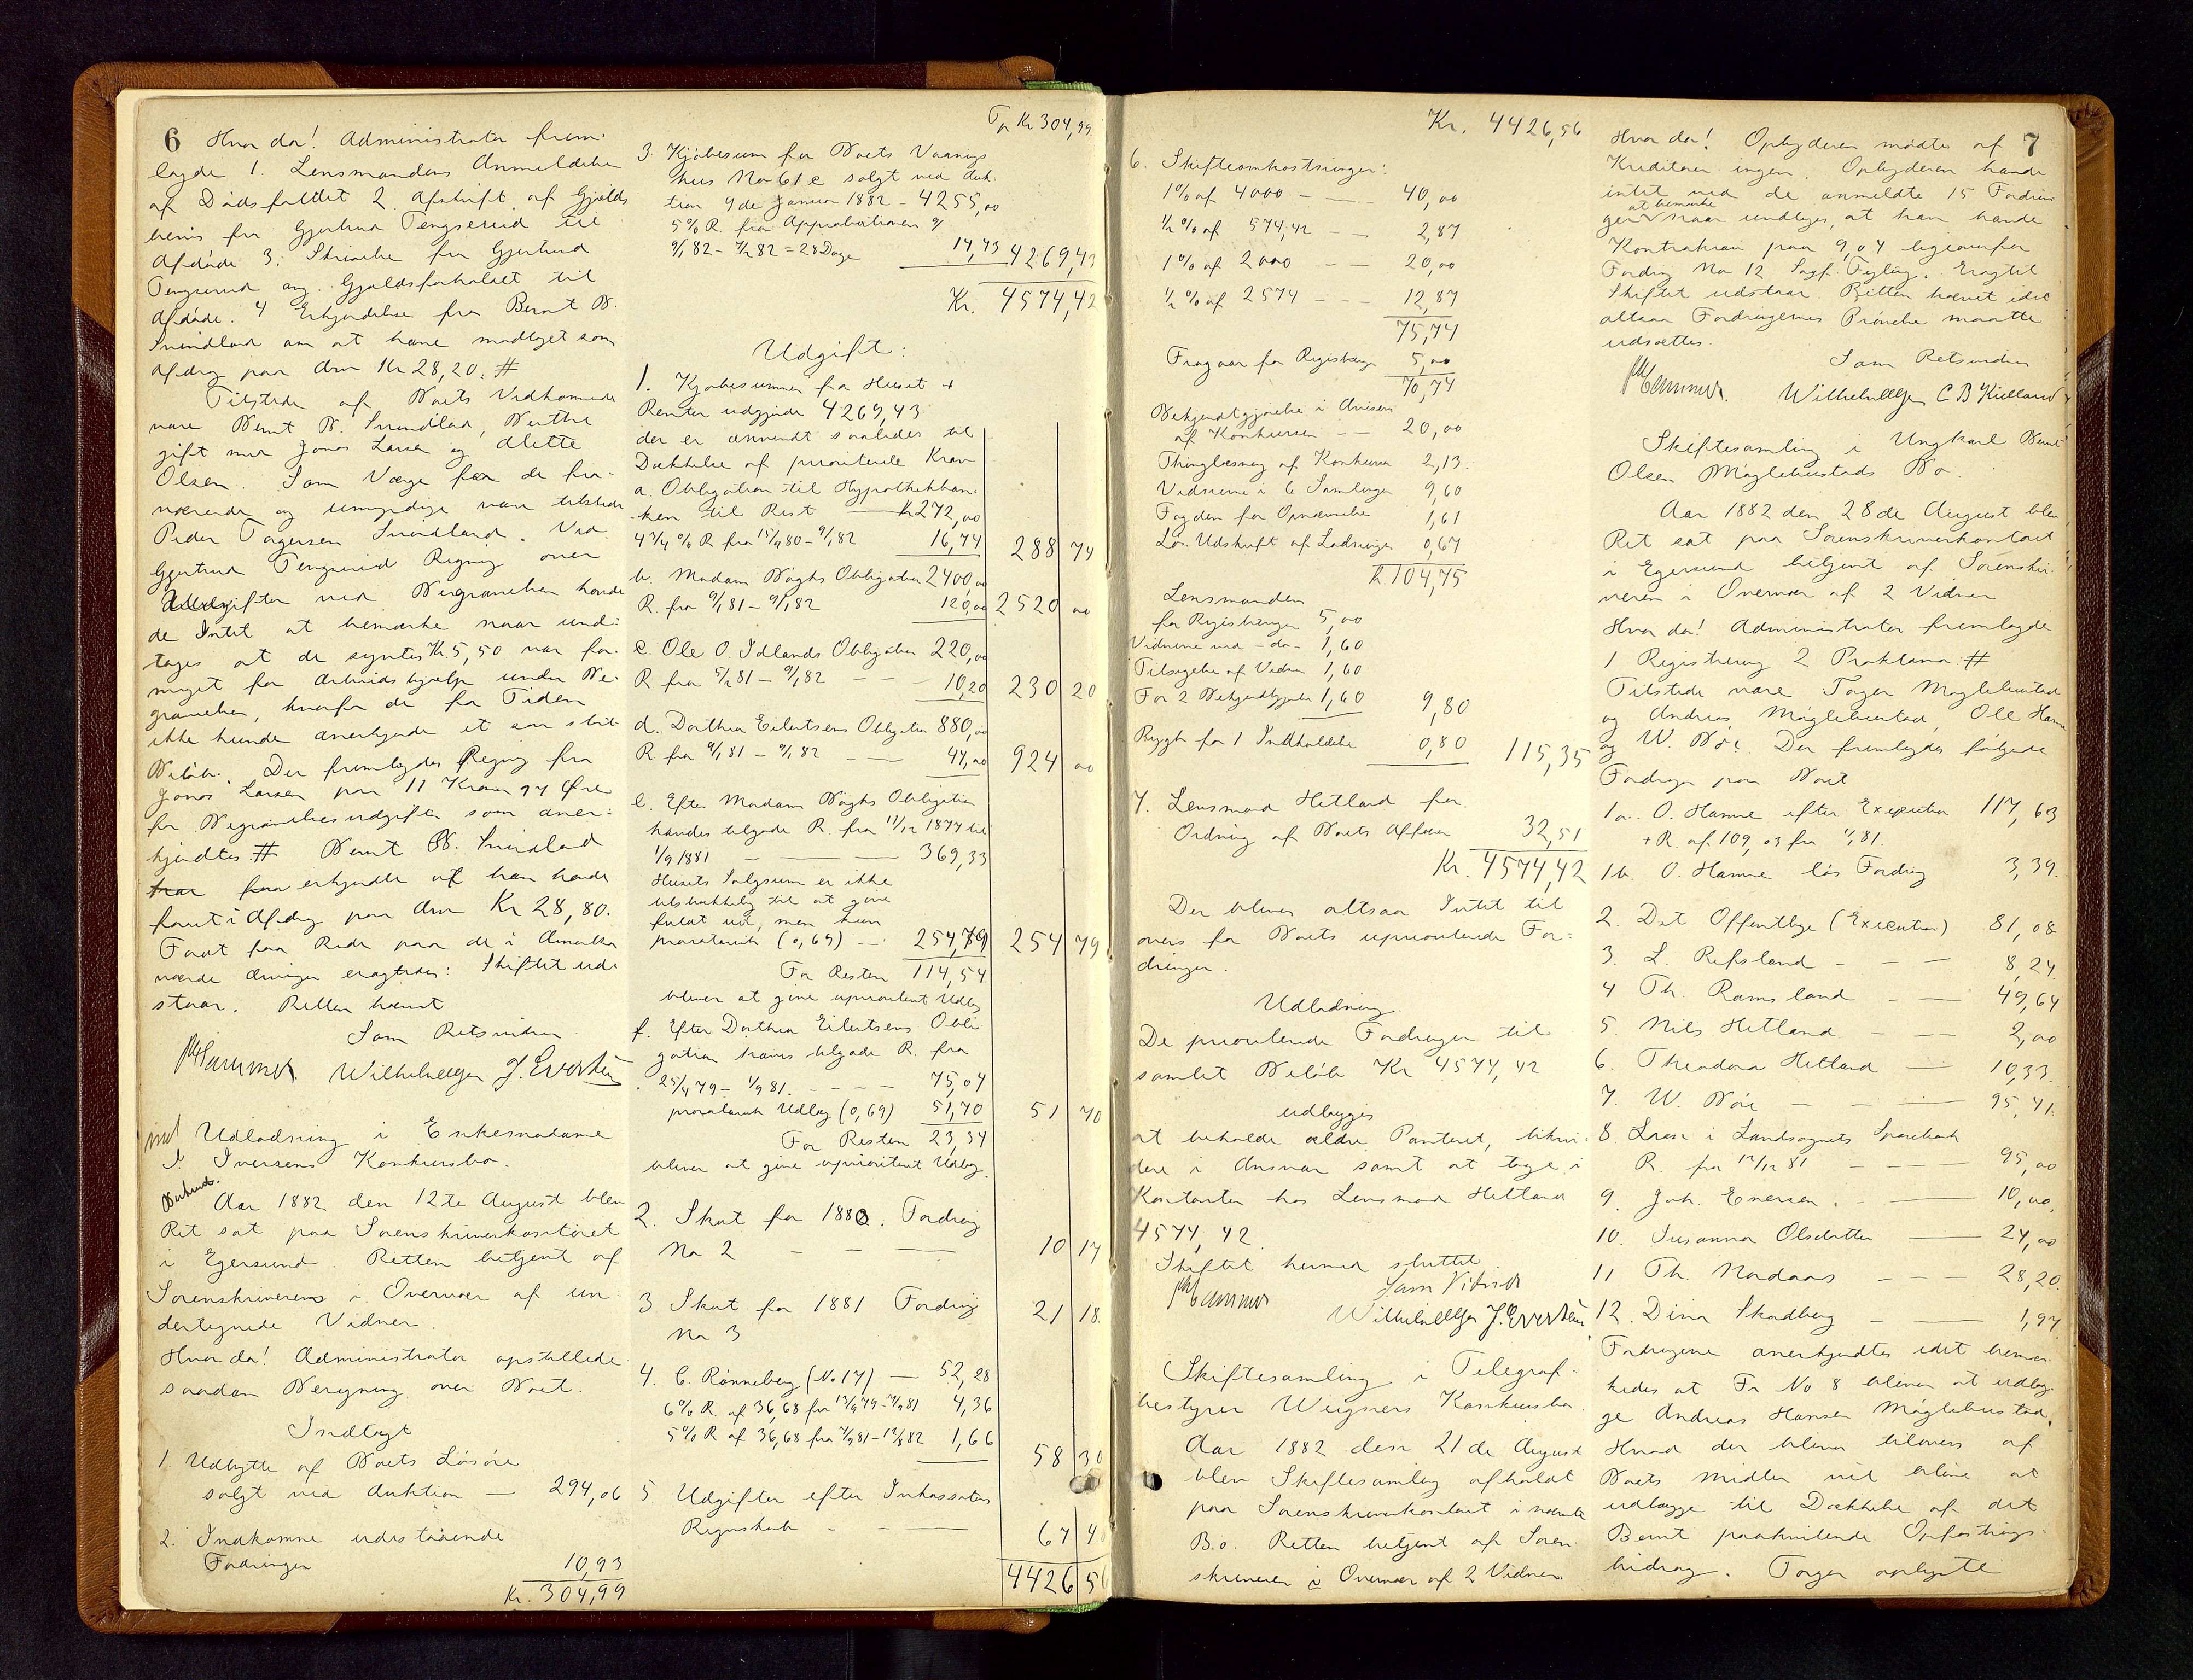 6 Hvorda! Administrator frem-
lagde 1. Lensmandens Anmeldelse
af Dødsfaldet 2. Afskrift af Gjelds
bevis fra Gjertrud Tengsereid til
Afdøde 3. Skrivelse fra Gjertrud
Tengsereid ang. Gjeldsforholdet til
Afdøde. 4 Erkjendelse fra Bernt B.
Svindland om at have modtaget som
Afdrag paa Arv Kr 28,20. #
Tilstede af Boets Vedkommende
vare Bernt B. Svindland, Berthe
gift med Jonas Larsen og Alette
Olsen. Som Værge for de fra-
værende og umyndige var tilstede
Peder Tagersen Svindland. Ved
Gjertrud Tengsereid Regning over
Udgifter ved Begravelsen havde
de Intet at bemærke naar und-
tages at de syntes Kr 5,50 var for
meget for Arbeidshjælp under Be-
gravelsen, hvorfor de for Tiden
ikke kunde anerkjende et saa stort
Beløb. Der fremlagdes Regning fra
Jonas Larsen paa 11 Kroner 94 Øre
for Begravelsesudgifter som aner-
kjendtes. # Bernt B. Svindland
erkjendte at han havde
faaet i Afdrag paa Arv Kr 28,80.
Foratt faa Rede paa de i Amerika
værende Arvinger eragtedes: Skiftet ud-
staar. Retten hævet
Som Retsvidner
Wilhelm Ellgen J. Evertsen
Udlodning i Enkemadame
J. Iversens Konkursbo.
Aar 1882 den 12te August blev
Ret sat paa Sorenskriverkontoret
i Egersund. Retten betjent af
Sorenskriveren i Overvær af un-
dertegnede Vidner.
Hvorda! Administrator opstillede
saadan Beregning over Boet.
Indtægt
1. Udbytte af Boets Løsøre
solgt ved Auktion — 294,06
2. Indkomne udestaaende
Fordringer 10,93
Kr. 304,99
Tp Kr 304,99
3. Kjøbesum for Boets Vaanings
hus No 61 c solgt ved Auk-
tion 9de Januar 1882 - 4255,00
5% R. fra Approbationen
9/1 82 - 7/2 82 = 28 Dage 14,43 4269,43
Kr. 4574,42
Udgift:
1. Kjøbesummen for Huset +
Renter udgjøde 4269,43
der er anvendt saaledes til
Dækkelse af prioriterede Krav
a. Obligation til Hypothekban-
ken til Rest — Kr 272,00
4 3/4 % R fra 15/9 80 - 9/1 82 16,74 288 74
b. Madam Bøghs Obligation 2400,00
R. fra 9/1 81 - 9/1 82 120,00 2520 00
c. Ole O. Idlands Obligation 220,00
R fra 5/2 81 - 9/1 82 — 10,20 230 20
d. Dorthea Eilertsens Obligation 880,00
R fra 9/1 81 - 9/1 82 — 44,00 924 00
e. Efter Madam Bøghs Obligation
havdes tilgode R. fra 11/12 1877 til
1/9 1881 — — — 369,33
Husets Salgsum er ikke
tilstrækkelig til at give
fuldt ud, men kun
proratarisk (0,69) — 254,79 254 79
For Resten 114,54
bliver at give uprioritert Udlæg
f. Efter Dorthea Eilertsens Obli
gation haves tilgode R. fra
25/4 79 - 1/9 81. — 75,04
proratarisk Udlæg (0,69) 51,70 51 70
For Resten 23,34
bliver at give uprioritert Udlæg.
2. Skat for 1880. Fordring
No 2 — — — 10 17
3. Skat for 1881 Fordring
No 3 21 18
4. C. Rønneberg (No 17) — 52,28
6% R. af 36,68 fra 13/9 79 - 7/9 81 4,36
5% R af 36,68 fra 7/9 81 - 12/8 82 1,66
58 30
5. Udgifter efter Inkassators
Regnskab — — 67 4
4426 5
Kr. 4426,56
6. Skifteomkostninger:
1% af 4000 — — 40,00
1/2 % af 574,42 — — 2,87
1% af 2000 — 20,00
1/2 % af 2574 — — 12,87
75,74
Fragaar for Registering 5,00
70,74
Bekjendtgjørelse i Aviserne
af Konkursen — 20,00
Thinglæsning af Konkursen 2,13
Vidnerne i 6 Samlinger 9,60
Fogden for Opnævnelse 1,61
Lør. Udskrift af Lodninger 0,67
Kr. 104,75
Lensmanden
for Registeringen 5,00
Vidnerne ved - do - 1,60
Tilsigelse af Vidner 1,60
For 2 Bekjendtgjørelser 1,60 9,80
Brygh for 1 Indkaldelse 0,80 115,35
7. Lensmand Hetland for
Ordning af Boets Affærer 32,51
Kr. 4574,42
Der bliver altsaa Intet til
overs for Boets uprioriterede For-
dringer.
Udlodning.
De prioriterede Fordringer til
samlet Beløb Kr 4574,42
udlægges
at beholde ældre Panteret, likvi-
dere i Ansvar samt at tage i
Kontanter hos Lensmand Hetland
4574,42.
Skiftet hermed sluttet
Som Vidner
Wilhelm Ellgen J. Evertsen
Skiftesamling i Telegraf-
bestyrer Weigners Konkursbo.
Aar 1882 den 21de August
blev Skiftesamling afholdt
paa Sorenskriverkontoret i nævnte
Bo. Retten betjent af Soren-
skriveren i Overvær af 2 Vidner.
Hvorda! Opbyderen mødte af 7
Kreditorer ingen. Opbyderen havde
intet ved de anmeldte 15 Fordrin
ger at bemærke naar undtages, at han havde
Kontrakrav paa 9,04 ligeoverfor
Fordring No 12 Sagf. Fyling. Eragtet
Skiftet udstaar. Retten hævet idet
altsaa Fordringernes Prøvelse maatte
udsættes.
Som Retsvidner
Wilhelm Ellgen C B Kielland
Skiftesamling i Ungkarl Bernt
Olsen Møglebustads Bo.
Aar 1882 den 28de August blev
Ret sat paa Sorenskriverkontoret
i Egersund betjent af Sorenskri-
veren i Overvær af 2 Vidner
Hvorda! Administrator fremlagde
1 Registrering 2 Proklama. #
Tilstede vare Tager Møglebustad
og Andreas Møglebustad, Ole Hamre
og W. Bøe. Der fremlagdes følgende
Fordringer paa Boet
1a. O. Hamre efter Exekution 117,63
+ R. af 109,03 fra 1/1 81.
1b. O. Hamre løs Fordring 3,39.
2. Det Offentlige (Execution) 81,08
3. L. Refsland - - — 8,24.
4 Th. Ramsland - — 49,64
5. Nils Hetland - — 2,00
6. Theodora Hetland — 10,33.
7. W. Bøe — - — 95,41.
8. Laan i Landsognets Sparebank
R. fra 12/12 81 - — — 95,00
9. Joh. Eversen. - — 10,00.
10. Susanna Olsdatter — 24,00
11 Th. Nordaas - — 28,20.
12. Dina Skadberg - — 1,94
Fordringerne anerkjendtes idet bemær
kedes at Fr No 8 bliver at udlæg
ge Andreas Hansen Møglebustad.
Hvad der bliver tilovers af
Boets Midler vil blive at
udlægge til Dækkelse af det
Bernt paahvilende Opfostrings-
bidrag. Tager oplyste